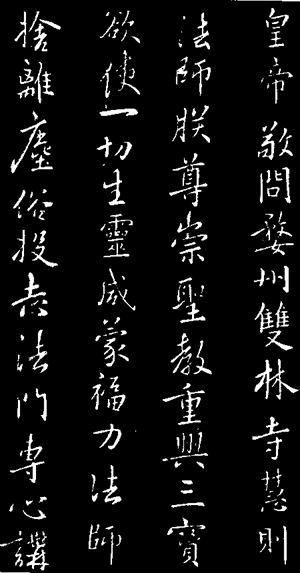 皇帝敬問婺州雙林寺慧則
法師朕尊崇聖教重興三寶
欲使一切生靈咸蒙福力法師
捨離塵俗投志法門專心講